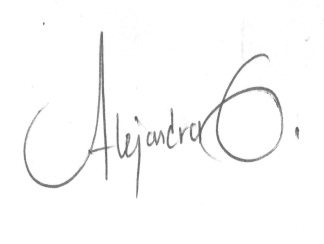 Alejandra G.